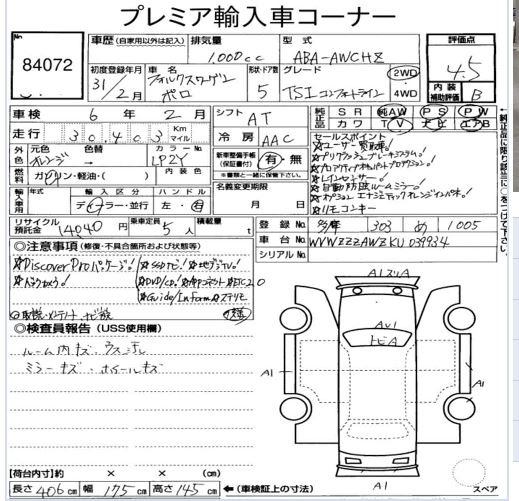 プレミア輸入車コーナー
No 84072
車歴 (自家用以外は記入) 排気量 1,000cc 型式 ABA-AWCHZ 評価点 4.5
初度登録年月 31/2月 車名 フォルクスワーゲン ポロ 形状・ドア数 5 グレード TSIコンフォートライン 2WD 4WD
内装補助評価 B
車検 6年 2月 シフト AT 純正品 SR 純AW PS PW
走行 30,403 Km マイル 冷房 AAC カワ TV ナビ エアB
外色 元色 オレンジ 色替 → カラーNo. LP2Y 内装色
燃料 ガソリン・軽油・( )
新車整備手帳(保証書付) 有・無
※書類と一緒に保管下さい。
輸入車用 年式 年 輸入区分 ディーラー・並行 ハンドル 左・右
名義変更期限 月 日
セールスポイント
☆ユーザー買取車!
☆プリクラッシュブレーキシステム!
☆レインセンサー!
☆自動防眩ルームミラー!
☆リモコンキー
←純正品に限り該当に○をつけて下さい。
リサイクル預託金 14040円 乗車定員 5人 積載量 t
登録No. 303 め 1005
車台No. WVWZZZAWZKU039934
シリアルNo.
◎注意事項 (修復・不具合箇所および状態等)
☆Discover Proパッケージ!
☆SSDナビ! ☆地デジTV!
☆バックカメラ!
☆DVD/CD! ETC2.0
☆Guide/Inform
◎取説・メンテノート・ナビ取説
◎検査員報告 (USS使用欄)
ルーム内キズ・ウスヨゴレ
ミラーキズ・ホイールキズ
A1 スリA
AU1
トビA
A1
A1
A1
スペア
【荷台内寸】約 × × (cm)
長さ 406cm 幅 175cm 高さ 145cm ←(車検証上の寸法)